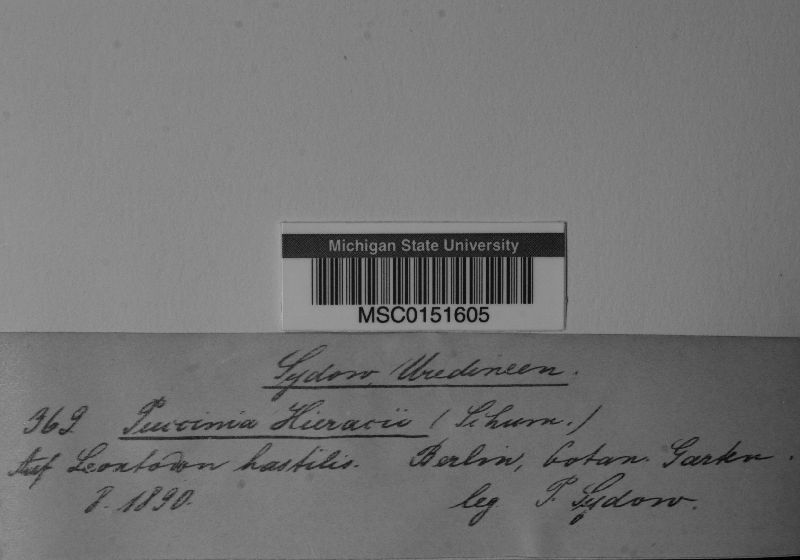 Michigan State University
MSC0151605
Sydow, Uredineen.
369 Puccinia Hieracii (Schum.)
Auf Leontodon hastilis. Berlin, botan. Garten.
8. 1890. leg P. Sydow.